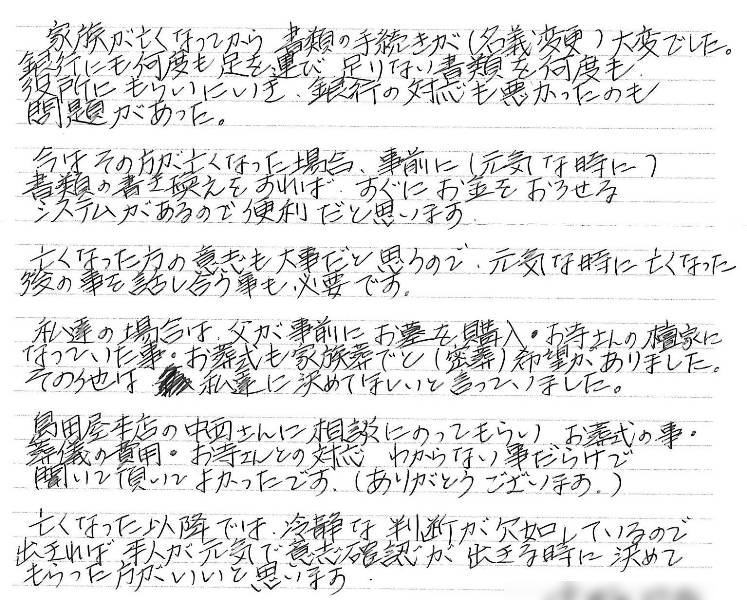 家族が亡くなってから 書類の手続きが(名義変更)大変でした。
銀行にも何度も足を運び 足りない書類を何度も
役所にもらいにいき、銀行の対応も悪かったのも
問題があった。
今はその方が亡くなった場合、事前に(元気な時に)
書類の書き換えをすれば、すぐにお金をおろせる
システムがあるので便利だと思います
亡くなった方の意志も大事だと思うので、元気な時に亡くなった
後の事を話し合う事も必要です。
私達の場合は、父が事前にお墓を購入・お寺さんの檀家に
なっていた事・お葬式も家族葬でと(密葬)希望がありました。
その他は 私達に決めてほしいと言っていました。
島田屋本店の中西さんに相談にのってもらい お葬式の事・
葬儀の費用・お寺さんとの対応 わからない事だらけで
聞いて頂いてよかったです。(ありがとうございます。)
亡くなった以降では、冷静な判断が欠如しているので
出きれば 本人が元気で意志確認が出きる時に決めて
もらった方がいいと思います